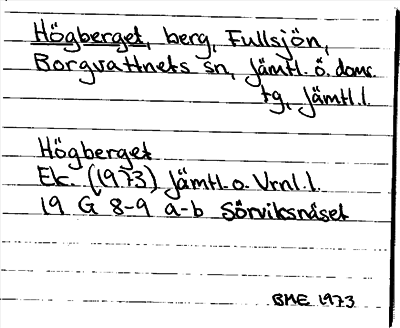 Högberget, berg, Fullsjön,
Borgvattnets sn, Jämtl. ö. doms.
tg, Jämtl. l.
Högberget
Ek. (1973) Jämtl. o. Vrnl. l.
19 G 8-9 a-b Sörviksnäset
BME 1973